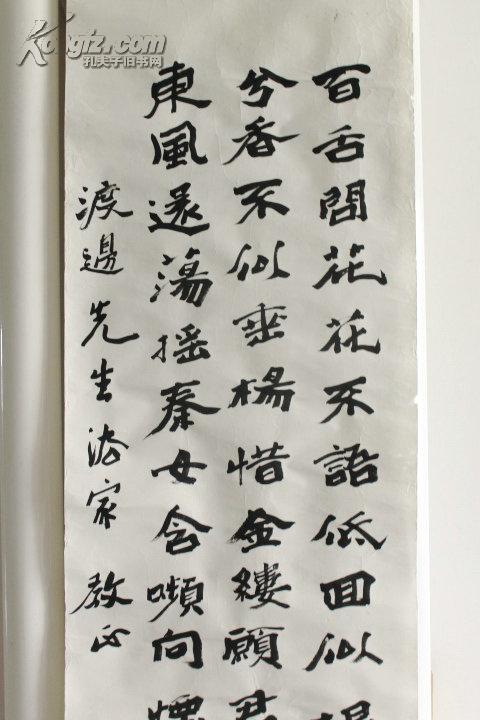 百舌問花花不語低回似
分香不似垂楊惜金縷願君
東風還蕩搖秦女含嚬向
渡邊先生法家 教正
Kongfz.com
孔夫子旧书网